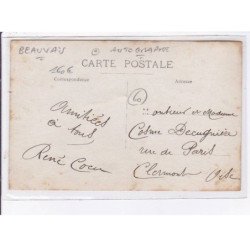 BEAUVAIS
AUTOGRAPHE
160€
CARTE POSTALE
Correspondance
Adresse
60
amitiés
à tous
René Coeur
Monsieur et Madame
Cosme
rue de Paris
Clermont Oise